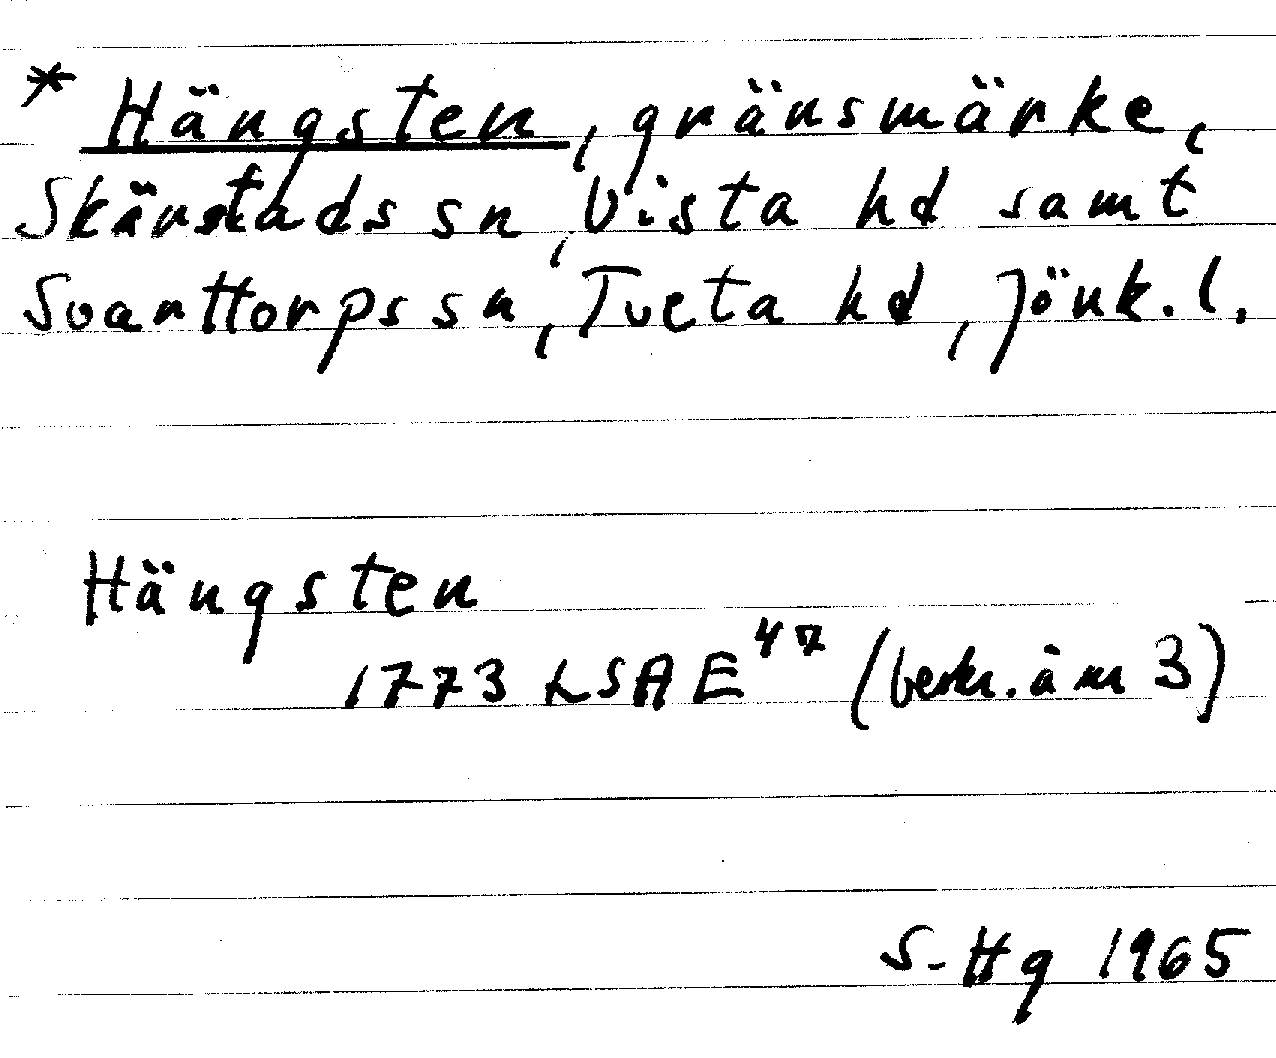 * Hängsten, gränsmärke,
Skärstads sn, Vista hd samt
Svarttorps sn, Tveta hd, Jönk. l.
Hängsten
1773 LSA E47 (beskr. å m 3)
S-Hg 1965